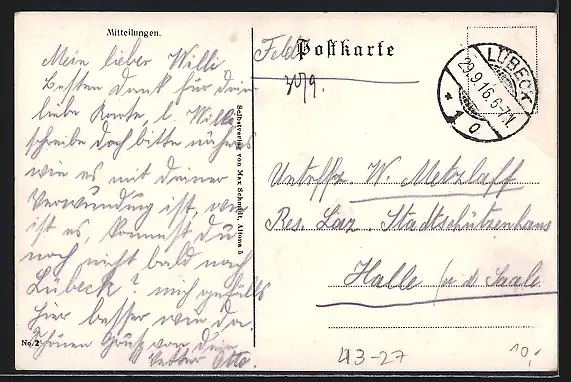 Mitteilungen.
Mein lieber Willi
Besten Dank für deine
liebe Karte, l. Willi
schreibe doch bitte näheres
wie es mit deiner
Verwundung ist, wie
ist es, kommst du
noch nicht bald nach
Lübeck? mir gefällt's
hier besser wie da.
Schönen Gruß von dein
Vetter Otto.
No. 2
Selbstverlag von Max Schmidt, Altona 5
Feld Postkarte
30/9.
LÜBECK
29.9.16.6-7V.
* 1 o
Untroffz W. Metzlaff
Res. Laz Stadtschützenhaus
Halle (a d. Saale
413-27
10,-